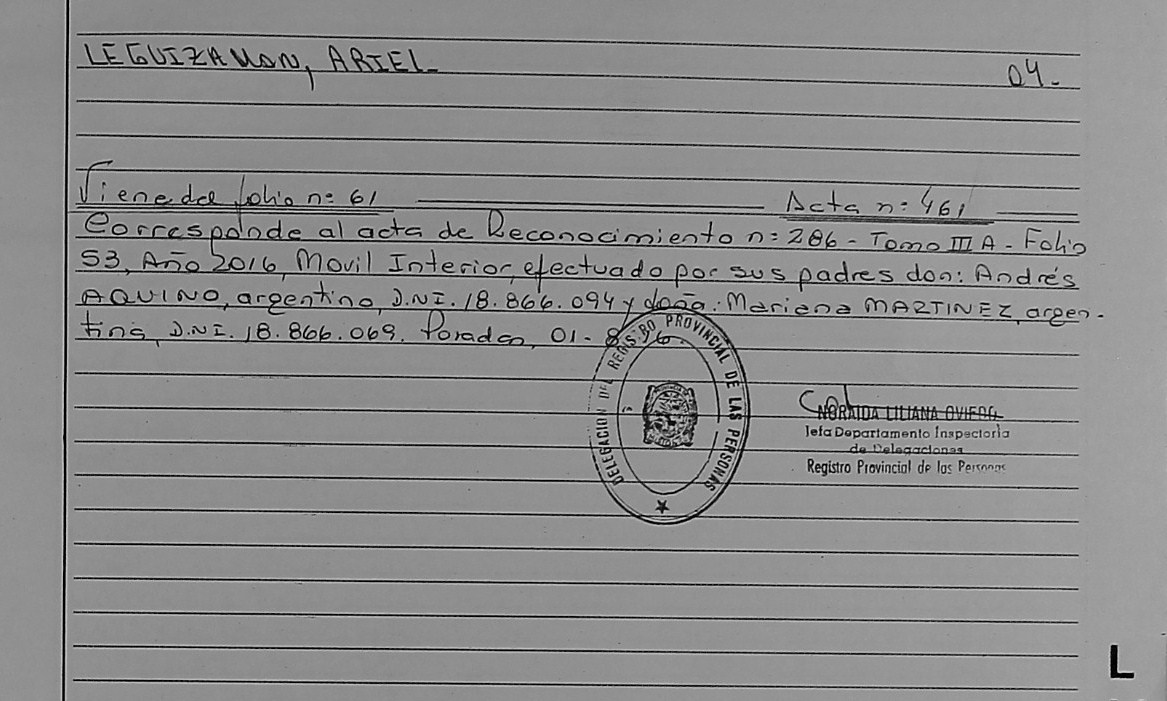 LEGUIZAMON, ARIEL_
04._
Viene del folio n: 61 Acta n: 461
Corresponde al acta de Reconocimiento n: 286 - Tomo III A - Folio
53, Año 2016, Movil Interior, efectuado por sus padres don: Andrés
AQUINO, argentino, D.N.I. 18.866.094 y doña: Mariana MARTINEZ, argen-
tina, D.N.I. 18.866.069. Posadas, 01-8-
DELEGACION DEL REGISTRO PROVINCIAL DE LAS PERSONAS
NORAIDA LILIANA OVIEDO
Jefa Departamento Inspectoria
de Delegaciones
Registro Provincial de las Personas
L